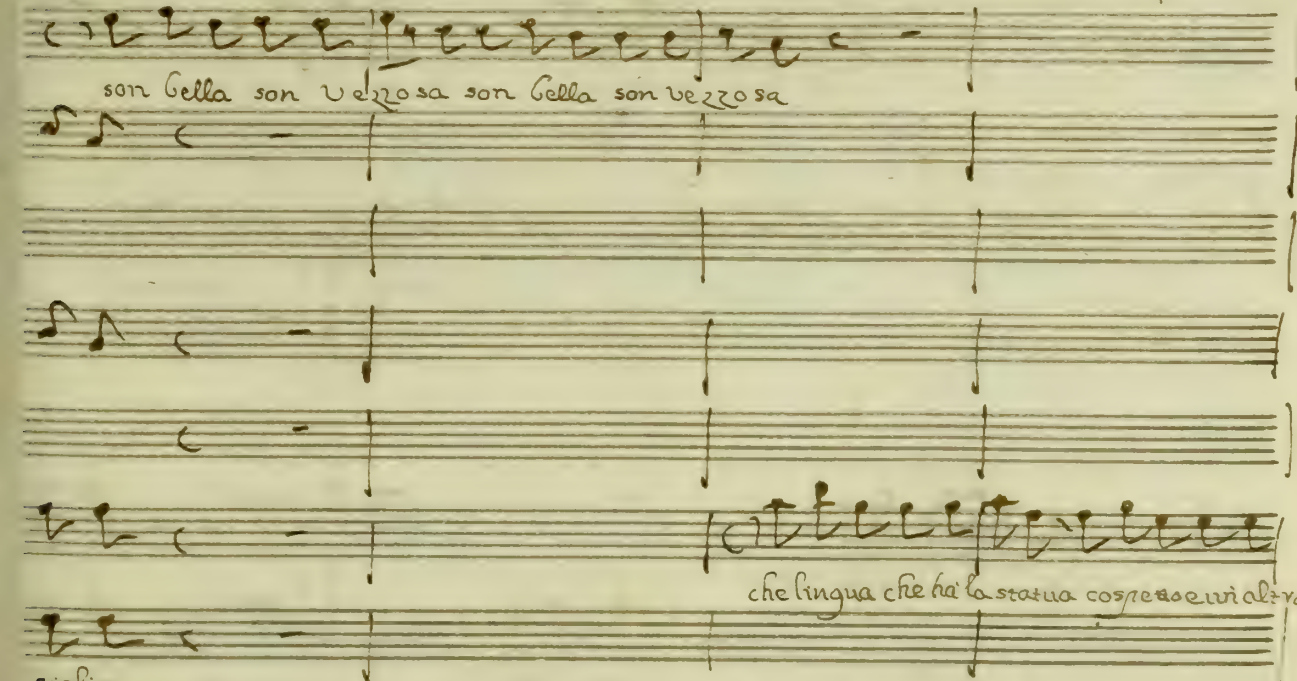 son bella son vezzosa son bella son vezzosa
che lingua che ha la statua cospetto e un altra